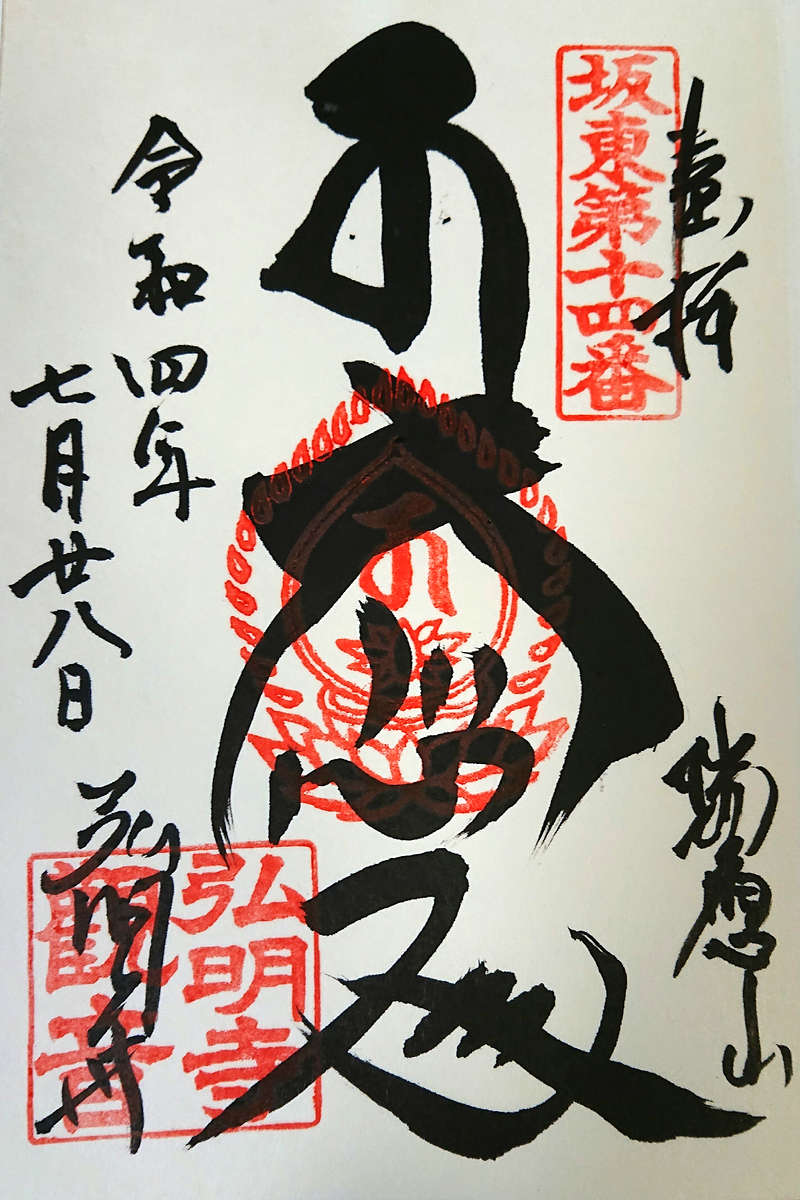 坂東第十四番
奉拝
瑞應山
令和四年
七月廿八日
弘明寺
弘明寺
觀音